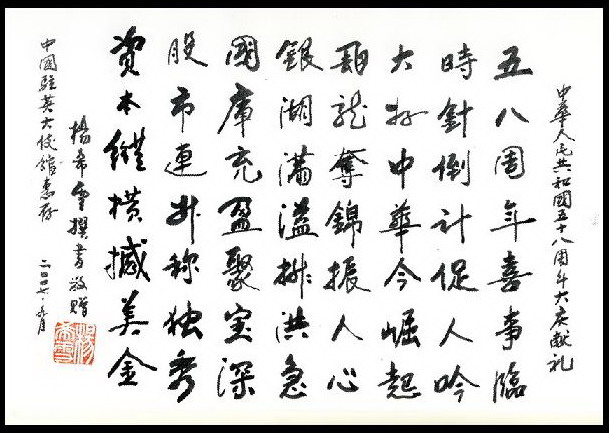 中華人民共和國五十八周年大庆献礼
五八周年喜事臨
時針倒计促人吟
大好中華今崛起
龍奪錦振人心
銀湖满溢排洪急
國庫充盈聚宝深
股市連升称独秀
資本縱横撼美金
中國駐英大使館惠存
楊希雪撰書敬贈
二〇〇七.九月
楊希雪